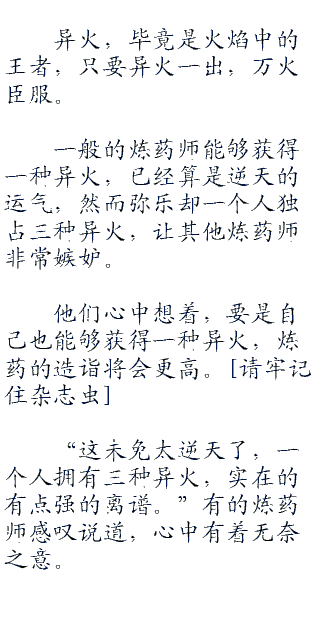 异火，毕竟是火焰中的
王者，只要异火一出，万火
臣服。
一般的炼药师能够获得
一种异火，已经算是逆天的
运气，然而弥乐却一个人独
占三种异火，让其他炼药师
非常嫉妒。
他们心中想着，要是自
己也能够获得一种异火，炼
药的造诣将会更高。[请牢记
住杂志虫]
“这未免太逆天了，一
个人拥有三种异火，实在的
有点强的离谱。”有的炼药
师感叹说道，心中有着无奈
之意。